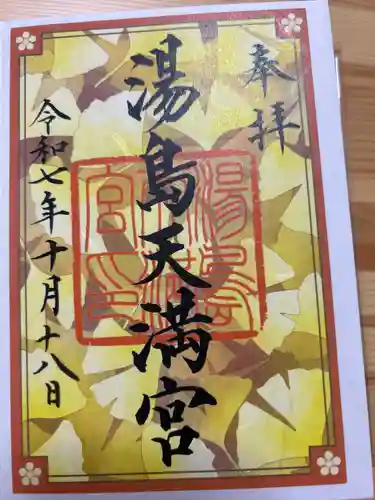 奉拝
湯島天満宮
湯島天満宮印
令和七年十月十八日